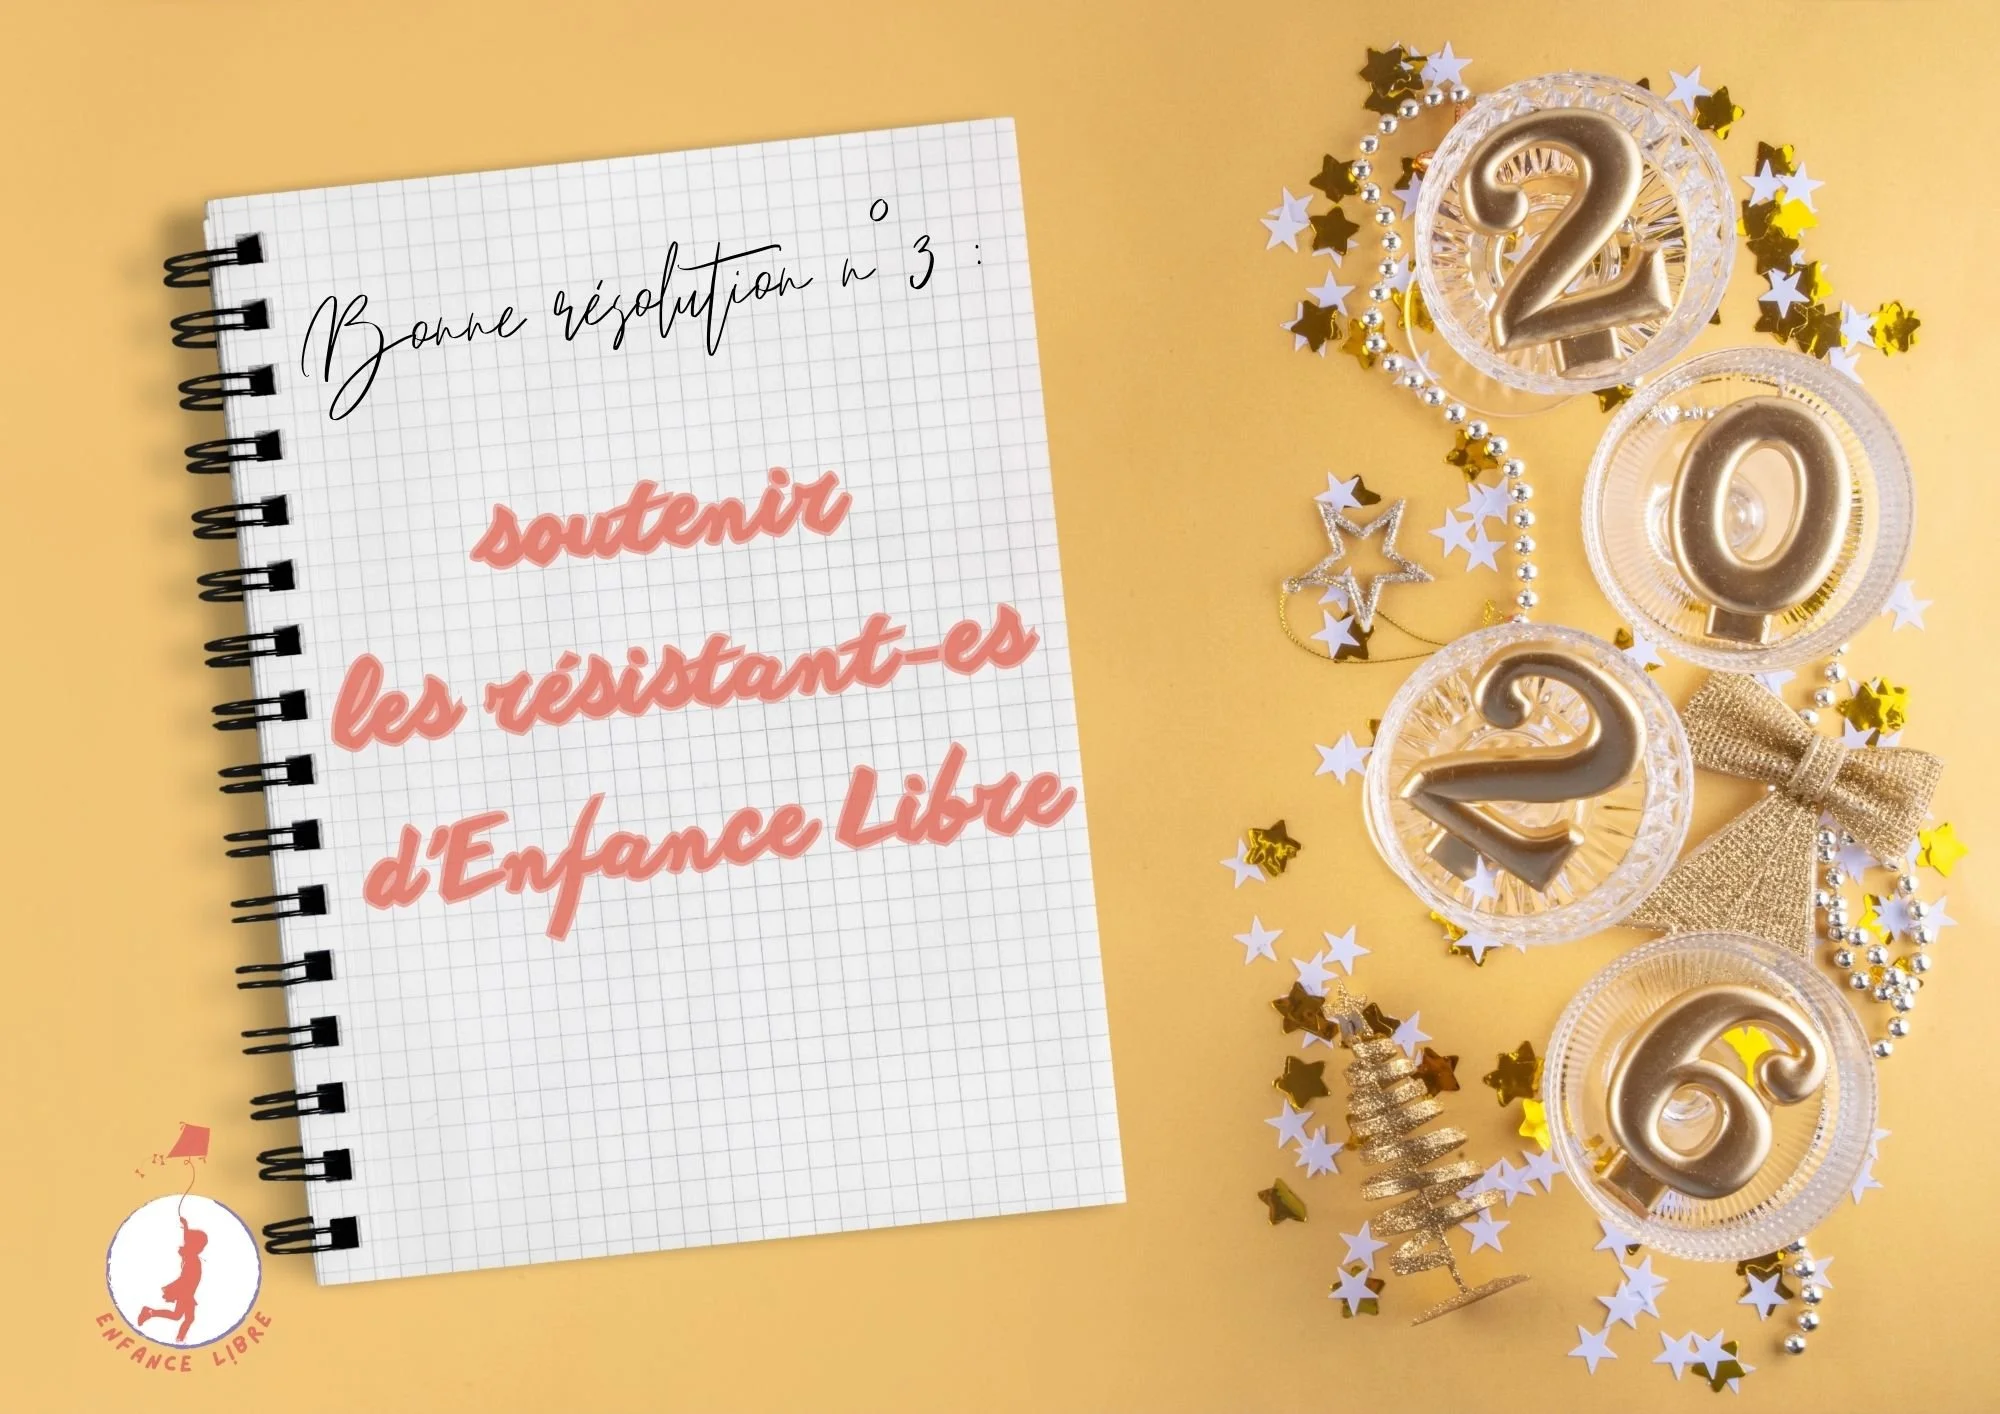 Bonne résolution n° 3 :
soutenir
les résistant-es
d'Enfance Libre
2
0
2
6
ENFANCE LIBRE